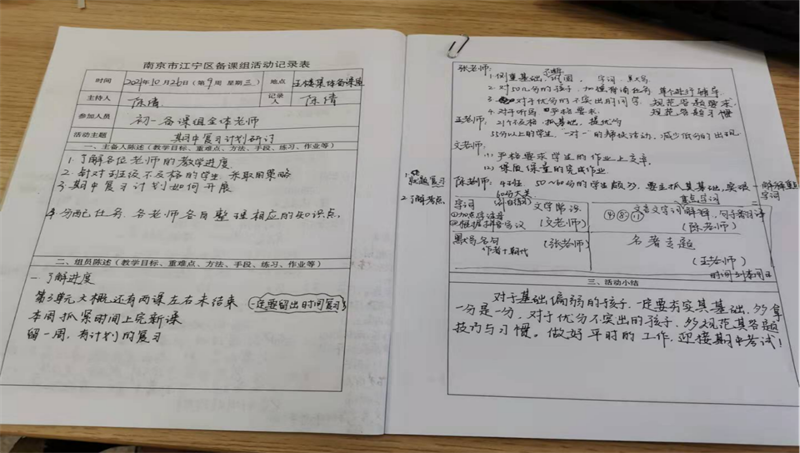 南京市江宁区备课组活动记录表
时间 2021年10月26日(第9周 星期三) 地点 主楼集体备课室
主持人 陈清 记录人 陈清
参加人员 初一备课组全体老师
活动主题 期中复习计划研讨
一、主备人陈述(教学目标、重难点、方法、手段、练习、作业等)
1. 了解各位老师的教学进度
2. 针对班级不及格的学生,采取的策略
3. 期中复习计划如何开展
4. 分配任务,各老师各自整理相应的知识点,
二、组员陈述(教学目标、重难点、方法、手段、练习、作业等)
一 了解进度
第3单元大概还有两课左右未结束 一定要留出时间复习
本周抓紧时间上完新课
留一周,有计划的复习
张老师:
1. 侧重基础 巩固, 字词、默写
2. 对50几分的孩子,
3. 对于优分的不突出的同学, 规范答题要求
4. 对于听写 严格要求. 规范答题习惯
王老师:
抓基础,
35分以上的学生,一对一的帮扶活动,减少低分的出现
文老师:
(1) 严格要求学生的作业上交率,
(2) 保质保量的完成作业
陈老师: 50~60分的学生较多, 要主抓其基础,
2. 了解考点
字词 文学常识 文言文字词解释,句子翻译
(文老师) (陈老师)
默写名句 (张老师) 名著专题
(王老师)
三、活动小结
对于基础偏弱的孩子一定要夯实其基础,多拿
一分是一分,对于优分不突出的孩子,多规范其答题
技巧与习惯。做好平时的工作,迎接期中考试!